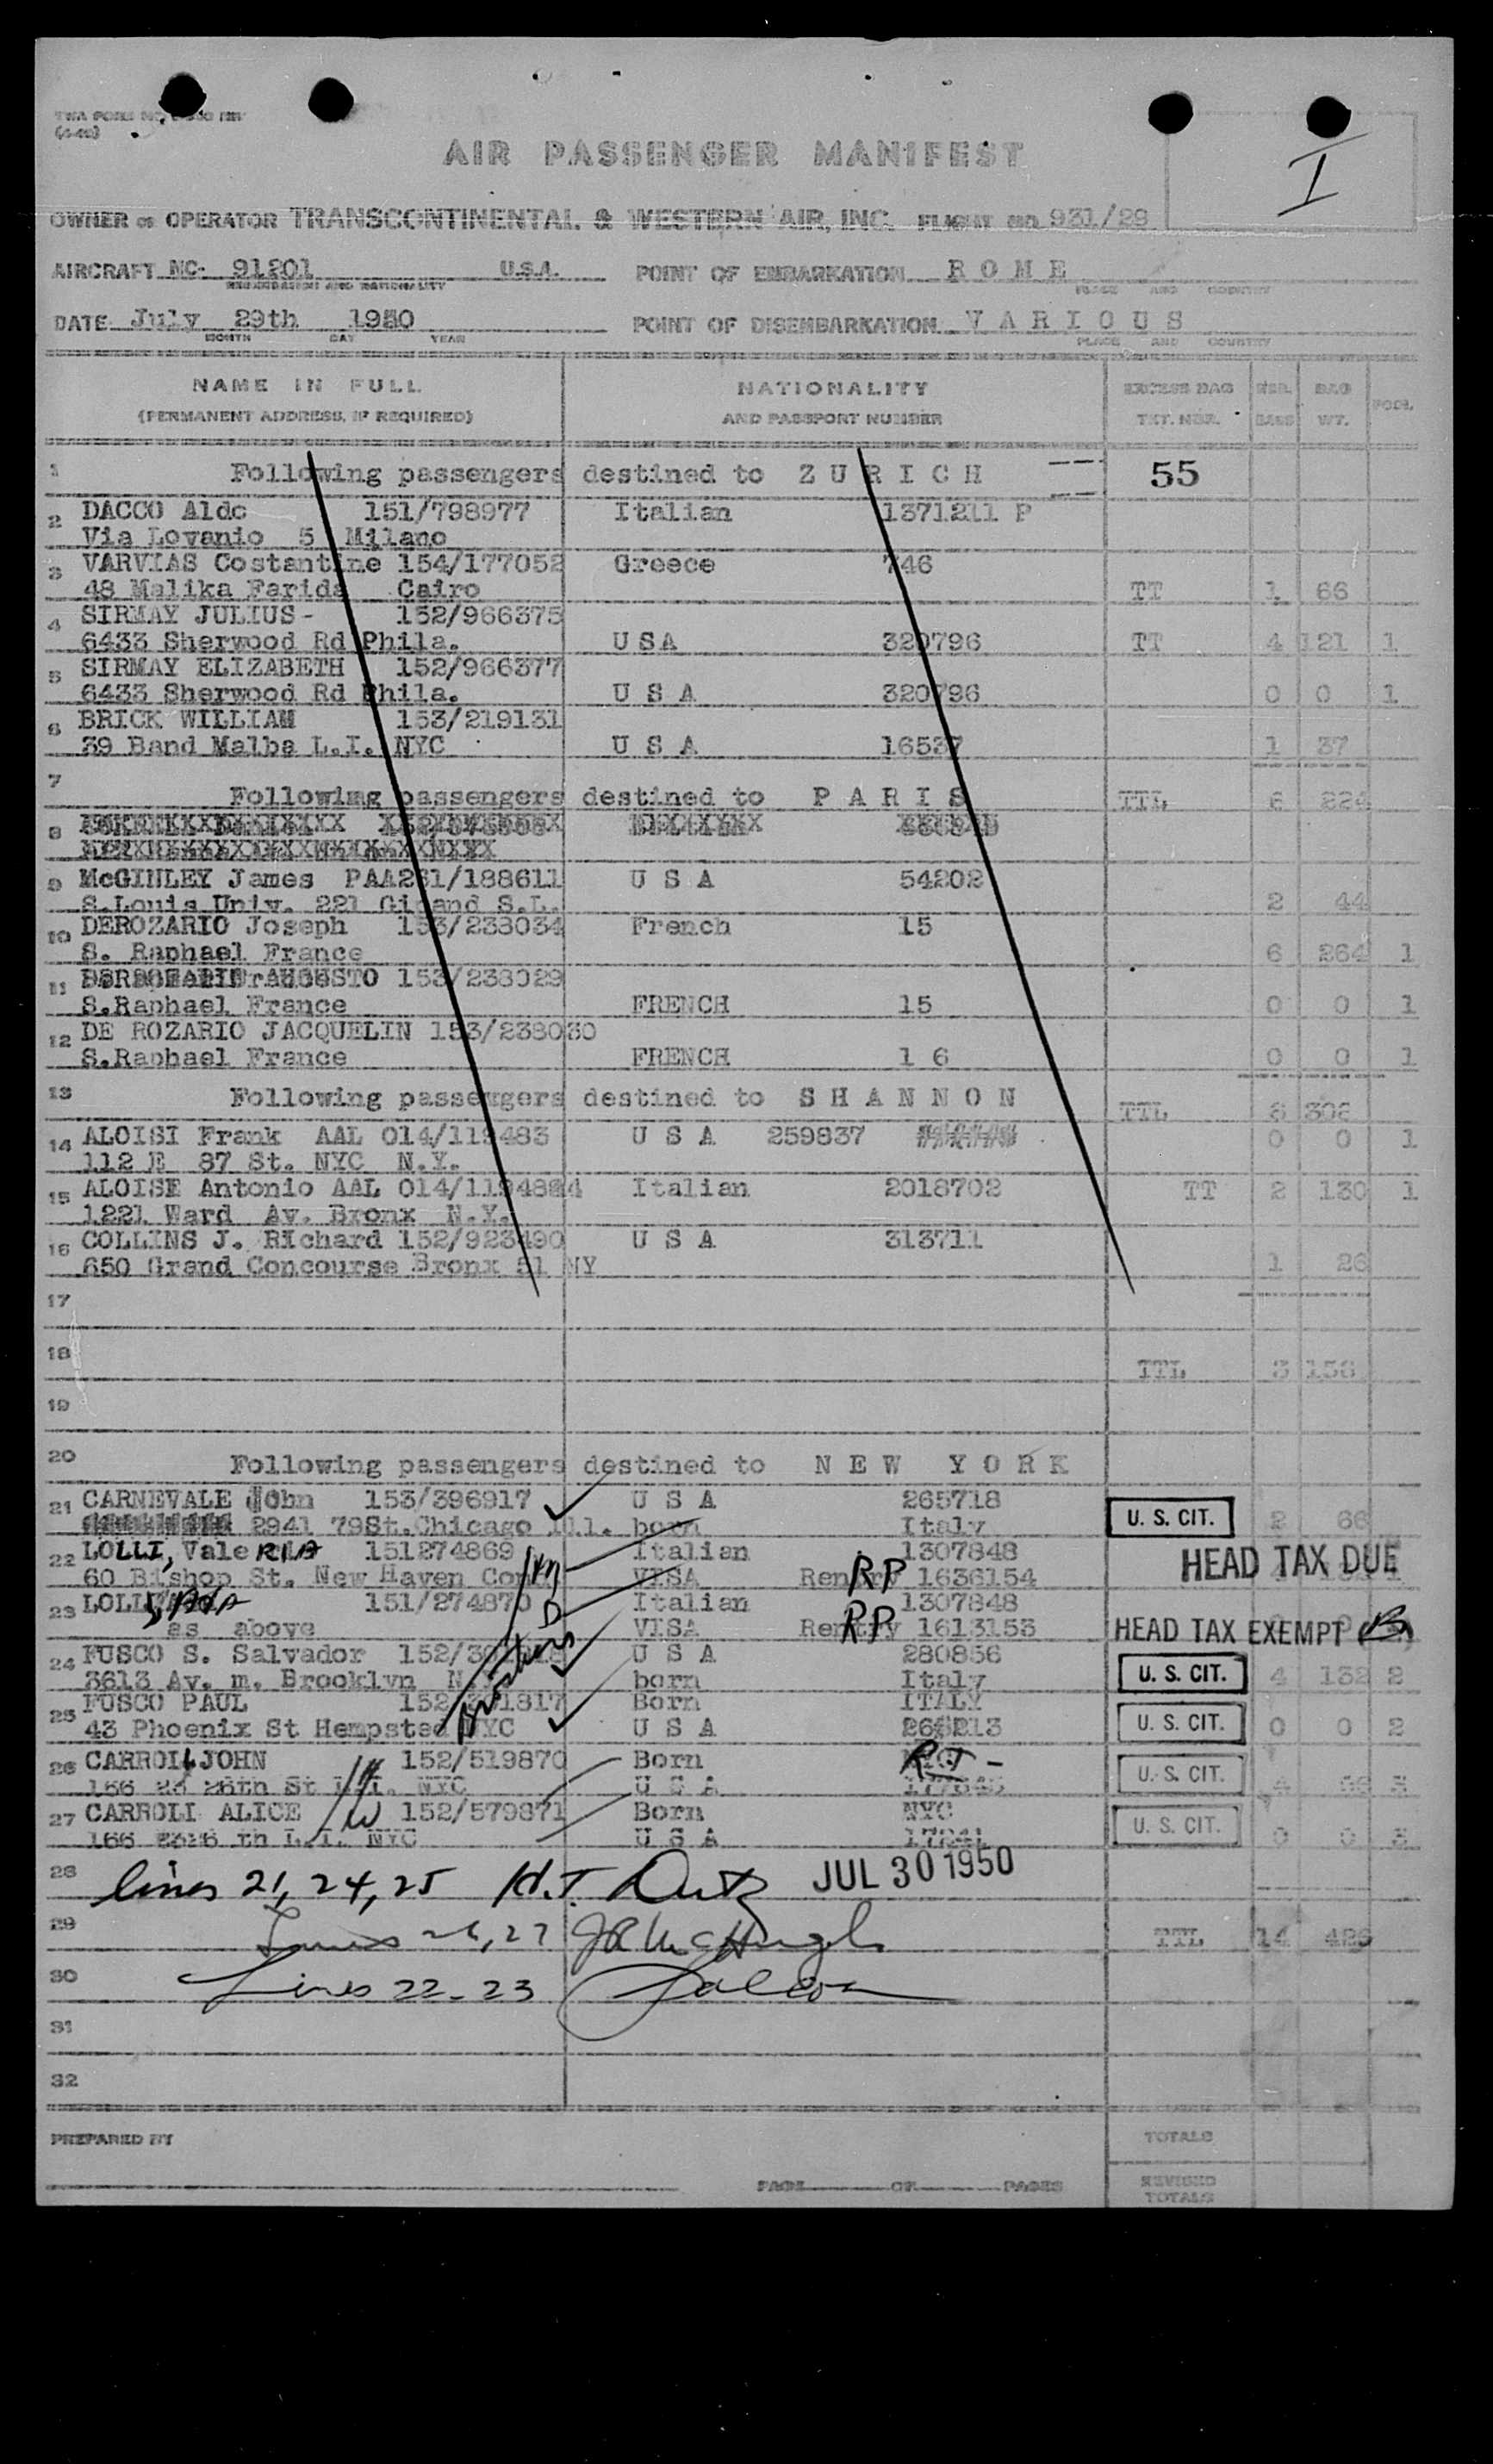 TWA FORM NO.
AIR PASSENGER MANIFEST
I
OWNER OR OPERATOR TRANSCONTINENTAL & WESTERN AIR, INC. FLIGHT NO. 931/29
AIRCRAFT NC- 91201 U.S.A. POINT OF EMBARKATION R O M E
REGISTRATION AND NATIONALITY PLACE AND COUNTRY
DATE July 29th 1950 POINT OF DISEMBARKATION V A R I O U S
MONTH DAY YEAR PLACE AND COUNTRY
NAME IN FULL NATIONALITY EXCESS BAG NBR. BAG
(PERMANENT ADDRESS, IF REQUIRED) AND PASSPORT NUMBER TKT. NBR. BAGS WT.
1 Following passengers destined to Z U R I C H 55
2 DACCO Aldo 151/798977 Italian 1371211 P
Via Lovanio 5 Milano
3 VARVIAS Costantine 154/177052 Greece 746
48 Malika Farida Cairo TT 1 66
4 SIRMAY JULIUS - 152/966375
6433 Sherwood Rd Phila. U S A 320796 TT 4 121 1
5 SIRMAY ELIZABETH 152/966377
6433 Sherwood Rd Phila. U S A 320796 0 0 1
6 BRICK WILLIAM 153/219131
39 Band Malba L.I. NYC U S A 16537 1 37
7 Following passengers destined to P A R I S TTL 6 224
8
9 McGINLEY James PAA261/188611 U S A 54202
S.Louis Univ. 221 Girand S.L. 2 44
10 DEROZARIO Joseph 153/238034 French 15
S. Raphael France 6 264 1
11 AUGUSTO 153/238029
S.Raphael France FRENCH 15 0 0 1
12 DE ROZARIO JACQUELIN 153/238030
S.Raphael France FRENCH 1 6 0 0 1
13 Following passengers destined to S H A N N O N TTL 8 308
14 ALOISI Frank AAL 014/119483 U S A 259837 0 0 1
112 E 87 St. NYC N.Y.
15 ALOISE Antonio AAL 014/119484 Italian 2018702 TT 2 130 1
1221 Ward Av. Bronx N.Y.
16 COLLINS J. RIchard 152/923490 U S A 313711
650 Grand Concourse Bronx 51 NY 1 26
17
18 TTL 3 156
19
20 Following passengers destined to N E W Y O R K
21 CARNEVALE JOhn 153/396917 U S A 265718
2941 79St.Chicago Ill. born Italy U. S. CIT. 2 66
22 LOLLI, ValeRIA 151274869 Italian 1307848 HEAD TAX DUE
60 Bishop St. New Haven Conn VISA Rentry RP 1636154
23 LOLLI, 151/274870 Italian 1307848
as above VISA Rentry RP 1613153 HEAD TAX EXEMPT
24 FUSCO S. Salvador U S A 280856
3613 Av. m. Brooklyn born Italy U. S. CIT. 4 132 2
25 FUSCO PAUL Born ITALY
43 Phoenix St Hempsted NYC U S A U. S. CIT. 0 0 2
26 CARROLL JOHN 152/519870 Born
166 23 26th St L.I. NYC U S A U. S. CIT.
27 CARROLL ALICE 152/579871 Born NYC
L.I. NYC U S A U. S. CIT. 0 0
28 lines 21, 24, 25 H.T. JUL 30 1950
29 Lines 26, 27 TTL 14
30 Lines 22-23
31
32
PREPARED BY TOTALS
PAGE OF PAGES REVISED
TOTALS